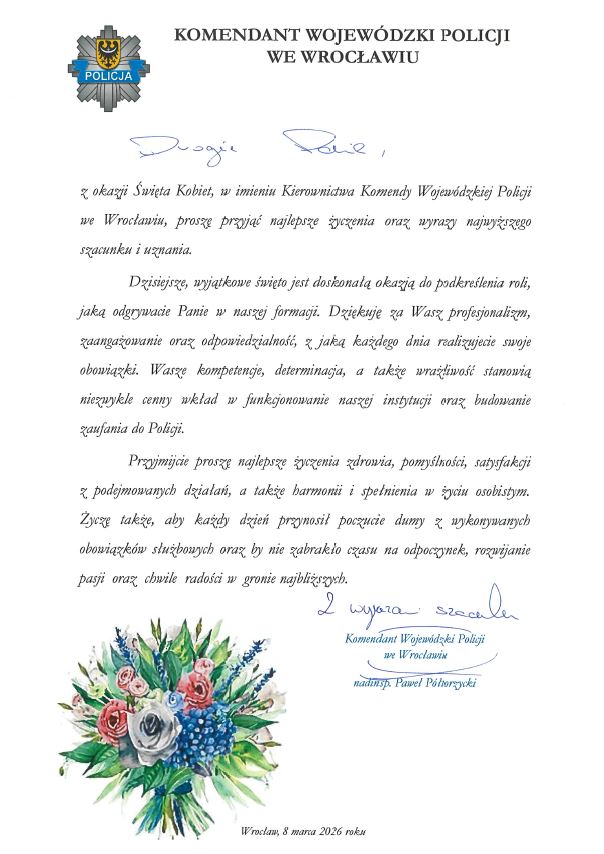 KOMENDANT WOJEWÓDZKI POLICJI
WE WROCŁAWIU
POLICJA
Drogie Panie,
z okazji Święta Kobiet, w imieniu Kierownictwa Komendy Wojewódzkiej Policji
we Wrocławiu, proszę przyjąć najlepsze życzenia oraz wyrazy najwyższego
szacunku i uznania.
Dzisiejsze, wyjątkowe święto jest doskonałą okazją do podkreślenia roli,
jaką odgrywacie Panie w naszej formacji. Dziękuję za Wasz profesjonalizm,
zaangażowanie oraz odpowiedzialność, z jaką każdego dnia realizujecie swoje
obowiązki. Wasze kompetencje, determinacja, a także wrażliwość stanowią
niezwykle cenny wkład w funkcjonowanie naszej instytucji oraz budowanie
zaufania do Policji.
Przyjmijcie proszę najlepsze życzenia zdrowia, pomyślności, satysfakcji
z podejmowanych działań, a także harmonii i spełnienia w życiu osobistym.
Życzę także, aby każdy dzień przynosił poczucie dumy z wykonywanych
obowiązków służbowych oraz by nie zabrakło czasu na odpoczynek, rozwijanie
pasji oraz chwile radości w gronie najbliższych.
Z wyrazami szacunku
Komendant Wojewódzki Policji
we Wrocławiu
nadinsp. Paweł Półtorzycki
Wrocław, 8 marca 2026 roku